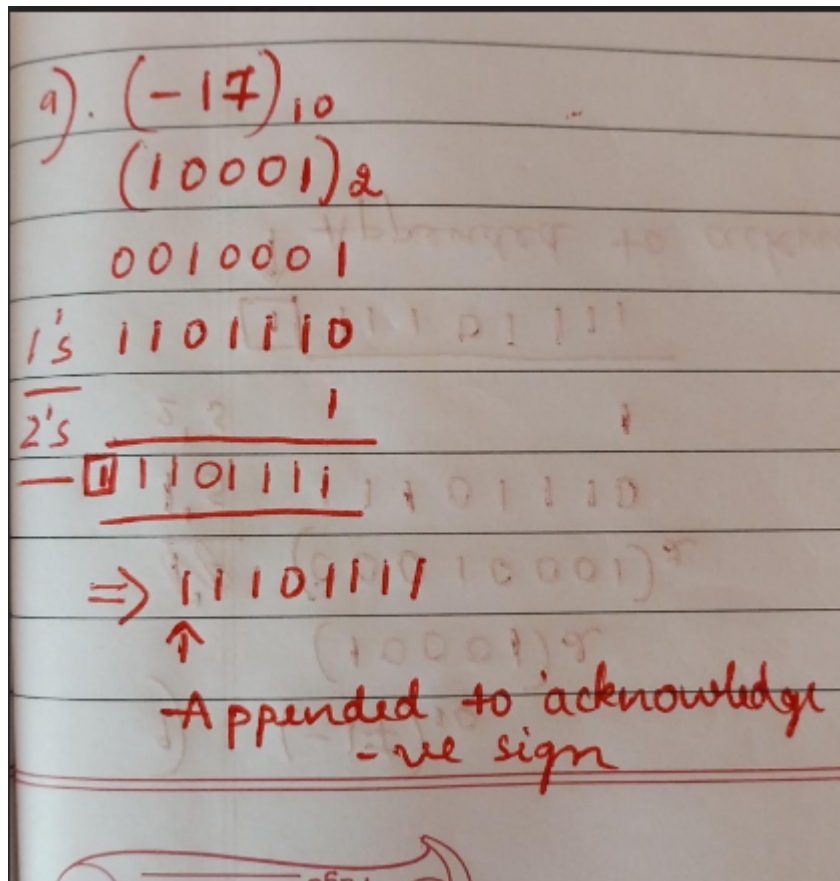 a). (-17)10
(10001)2
0010001
1's 1101110
2's 1
1 1101111
=> 11101111
↑
Appended to acknowledge
-ve sign